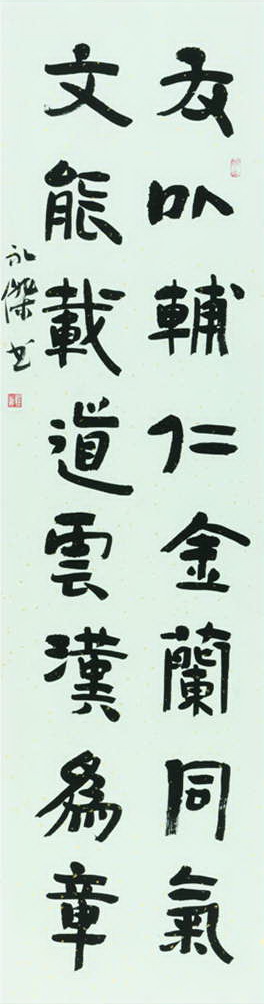 友以輔仁金蘭同氣
文能載道雲漢為章
永傑书